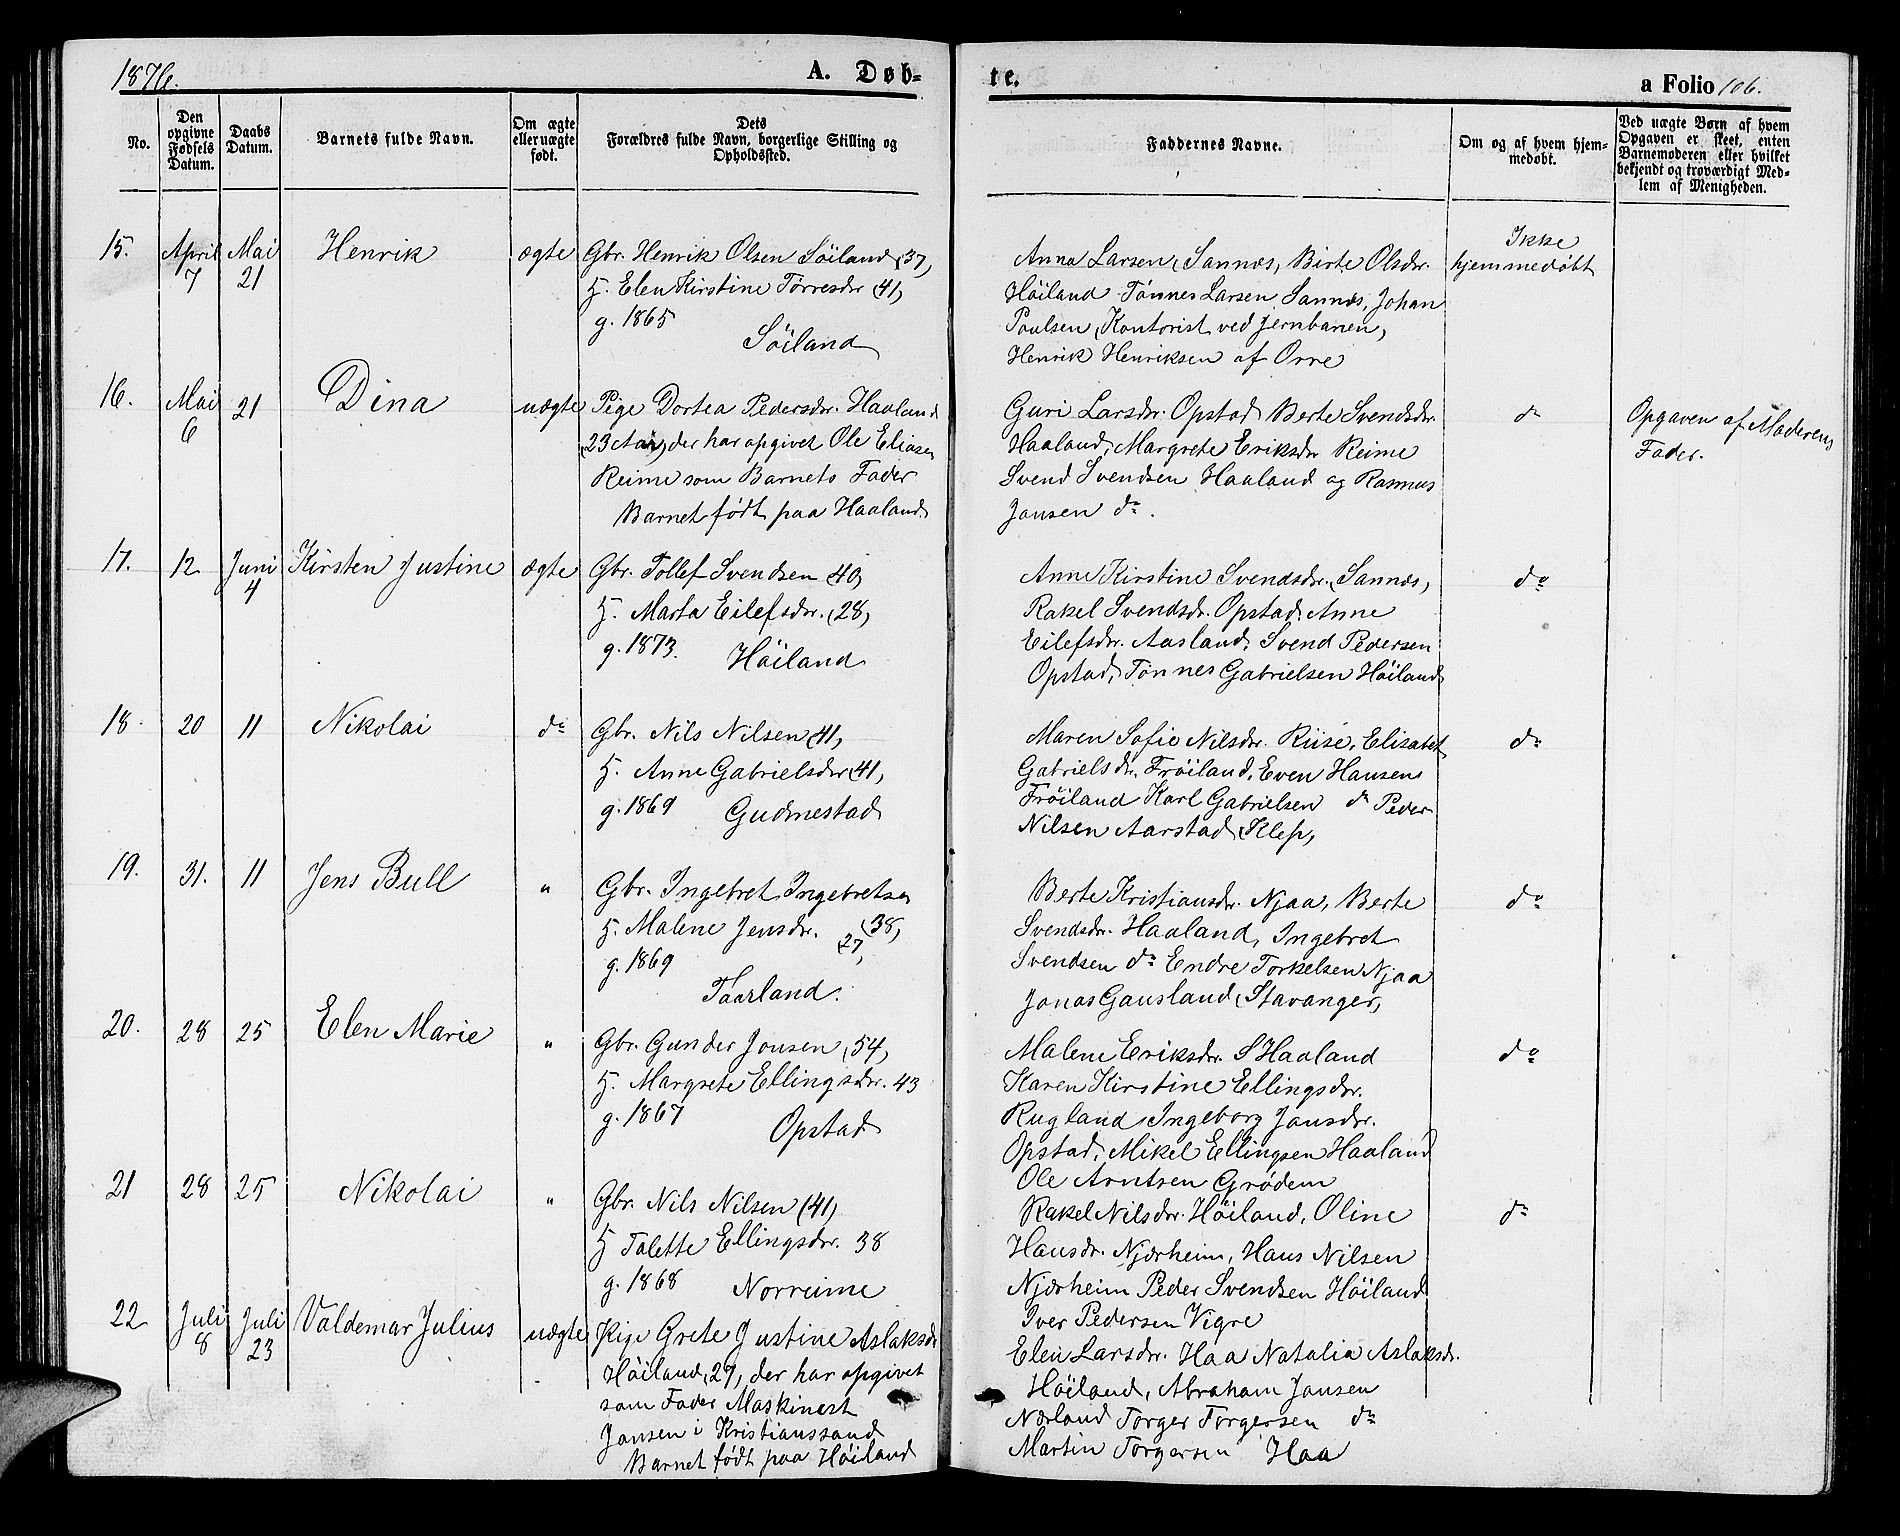 1876.
A. Døb-
te.
a Folio 106.
No.
Den opgivne Fødsels Datum.
Daabs Datum.
Barnets fulde Navn.
Om ægte eller uægte født.
Dets Forældres fulde Navn, borgerlige Stilling og Opholdssted.
Faddernes Navne.
Om og af hvem hjem-
medøbt.
Ved uægte Børn af hvem
Opgaven er skeet, enten
Barnemoderen eller hvilket
bekjendt og troværdigt Med-
lem af Menigheden.
15. April 7 Mai 21 Henrik ægte
Gbr. Henrik Olsen Söiland (37)
H. Elen Kirstine Törresdr (41)
g. 1865
Söiland
Anna Larsen (Sannæs) Birte Olsdr.
Höiland Tönnes Larsen Sannæs, Johan
Poulsen (Kontorist ved Jernbanen)
Henrik Henriksen af Orre
Ikke
hjemmedøbt
16. Mai 6 21 Dina uægte
Pige Dortea Pedersdr. Haaland
(23 Aar) der har opgivet Ole Eliasen
Reime som Barnets Fader
Barnet født paa Haaland
Guri Larsdr. Opstad Berte Svendsdr.
Haaland, Margrete Eriksdr Reime
Svend Svendsen Haaland og Rasmus
Jansen do.
do
Opgaven af Moderens
Fader.
17. 12 Juni 4 Kirsten Justine ægte
Gbr. Tollef Svendsen (40)
H. Marta Eilefsdr. (28)
g. 1873.
Höiland
Anne Kirstine Svendsdr. (Sannæs)
Rakel Svendsdr. Opstad. Anne
Eilefsdr. Aasland, Svend Pedersen
Opstad, Tönnes Gabrielsen Höiland
do
18. 20 11 Nikolai do
Gbr. Nils Nilsen (41)
H. Anne Gabrielsdr (41)
g. 1869
Gudmestad
Maren Sofie Nilsdr. Riise, Elisabet
Gabrielsdr. Fröiland, Even Hansen
Fröiland Karl Gabrielsen do Peder
Nilsen Aarstad (Klep)
do
19. 31. 11 Jens Bull "
Gbr. Ingebret Ingebretsen
H. Malene Jensdr. (38)
27,
g. 1869
Taarland.
Berte Kristiansdr. Njaa, Berte
Svendsdr. Haaland, Ingebret
Svendsen do Endre Torkelsen Njaa
Jonas Gausland (Stavanger)
do
20. 28 25 Elen Marie "
Gbr. Gunder Jonsen (54)
H. Margrete Ellingsdr. 43
g. 1867
Opstad
Malene Eriksdr. S Haaland
Karen Kirstine Ellingsdr.
Rugland Ingeborg Jansdr.
Opstad, Mikel Ellingsen Haaland
Ole Arntsen Grödem
do
21 28 25 Nikolai "
Gbr. Nils Nilsen (41)
H Talette Ellingsdr. 38
g. 1868
Norreime
Rakel Nilsdr. Höiland, Oline
Hansdr. Njærheim, Hans Nilsen
Njærheim Peder Svendsen Höiland
Iver Pedersen Vigre
do
22 Juli 8 Juli 23 Valdemar Julius uægte
Pige Grete Justine Aslaksdr
Höiland (27) der har opgivet
som Fader Maskinest
Jansen i Kristianssand
Barnet født paa Höiland
Elen Larsdr. Haa Natalia Aslaksdr.
Höiland, Abraham Jansen
Nærland Torger Torgersen do
Martin Torgersen Haa